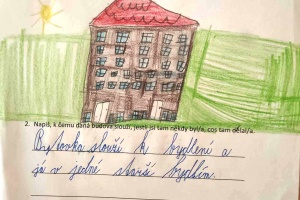 2. Napiš, k čemu daná budova slouží, jestli jsi tam někdy byl/a, cos tam dělal/a.
Bytovka slouží k bydlení a
já v jedné starší bydlím.